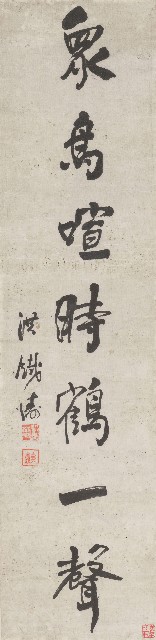 衆鳥喧時鶴一聲
洪鐵濤